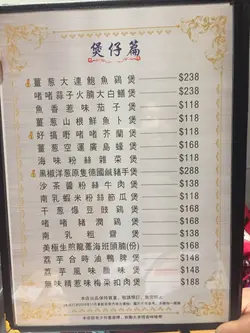 煲仔篇
薑葱大連鮑魚鷄煲 $238
啫啫蒜子火腩大白鱔煲 $238
魚香惹味茄子煲 $118
薑葱山根鮮魚卜煲 $118
好搞嘢啫啫芥蘭煲 $118
薑葱空運廣島蠔煲 $168
海味粉絲雜菜煲 $118
黑椒洋葱原隻德國鹹豬手煲 $288
沙茶醬粉絲牛肉煲 $138
南乳蝦米粉絲節瓜煲 $118
干葱爆豆豉鷄煲 $168
啫啫豬潤鷄煲 $168
南乳粗齋煲 $138
美極生煎龍躉海班頭腩(份) $168
荔芋台時滷鴨脾煲 $148
荔芋風味臘味煲 $148
無味精惹味梅菜扣肉煲 $188